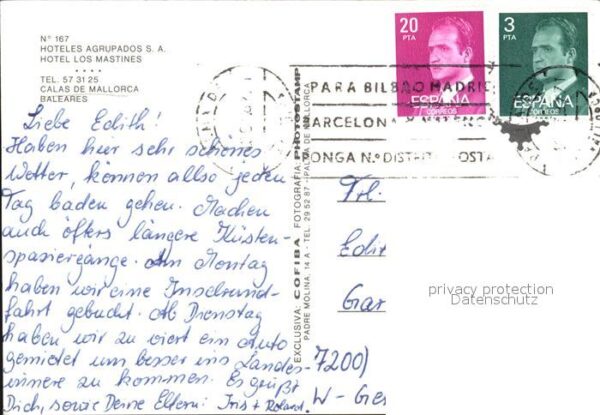 N° 167
HOTELES AGRUPADOS S. A.
HOTEL LOS MASTINES
• • • •
TEL. 57 31 25
CALAS DE MALLORCA
BALEARES
20
PTA
ESPAÑA
CORREOS
3
PTA
ESPAÑA
CORREOS
PARA BILBAO MADRID
BARCELONA
PONGA N.º DISTRITO POSTAL
Liebe Edith!
Haben hier sehr schönes
Wetter, können allso jeden
Tag baden gehen. Machen
auch öfters längere Küsten-
spaziergänge. Am Montag
haben wir eine Inselrund-
fahrt gebucht. Ab Dienstag
haben wir zu viert ein Auto
gemietet um besser ins Landes-
innere zu kommen. Es grüßt
Dich, sowie Deine Eltern: Iris + Roland.
EXCLUSIVA: COFIBA FOTOGRAFIA PHOTOSTAMP
PADRE MOLINA, 14 A - TEL. 29 52 87 - PALMA DE MALLORCA
Frl.
Edit
Gar
7200)
W-Ger
privacy protection
Datenschutz